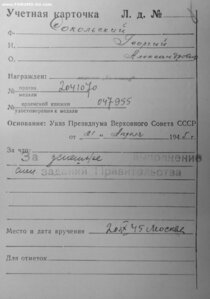 Учетная карточка Л. д. №
Ф. Сокольский
И. Георгий
О. Александрович
Награжден:
№ ордена 2041070
медали
№ орденской книжки 047955
удостоверения к медали
Основание: Указ Президиума Верховного Совета СССР
от „21“ Апреля 1945 г.
За что:
За успешное выполнение
задания Правительства
Место и дата вручения 45 Москва
Для отметок